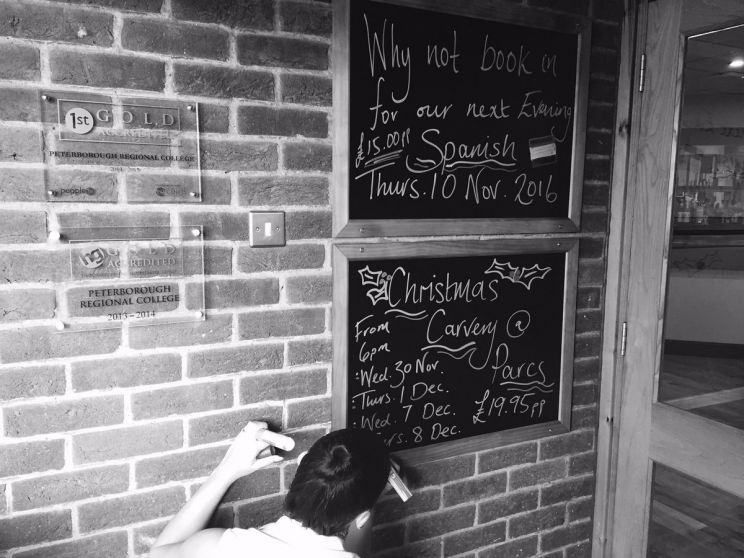 1st GOLD
ACCREDITED
PETERBOROUGH REGIONAL COLLEGE
people
ACCREDITED
PETERBOROUGH
REGIONAL COLLEGE
2013 - 2014
Why not book in
for our next Evening
£15.00pp
Spanish
Thurs. 10 Nov. 2016
Christmas
Carvery @
Parcs
£19.95pp
From
6pm
:Wed. 30 Nov.
:Thurs. 1 Dec.
:Wed. 7 Dec.
8 Dec.